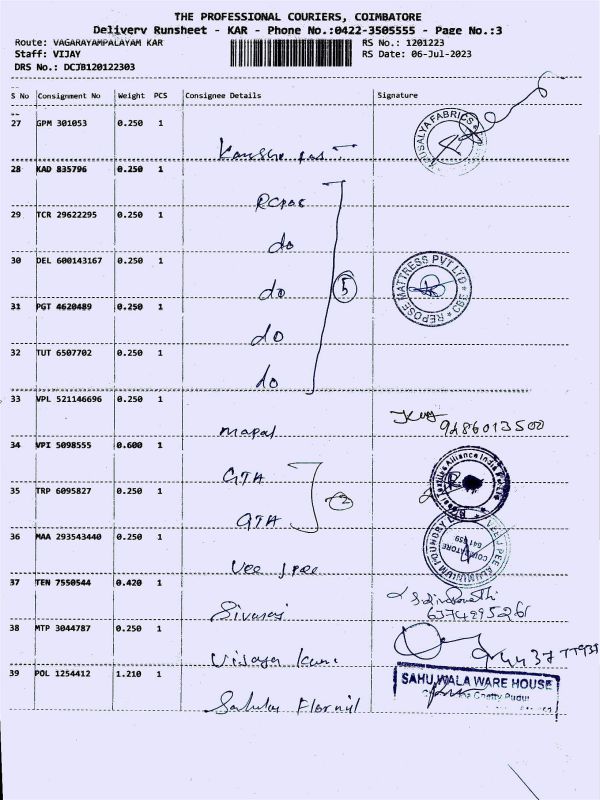 THE PROFESSIONAL COURIERS, COIMBATORE
Delivery Runsheet - KAR - Phone No.:0422-3505555 - Page No.:3
Route: VAGARAYAMPALAYAM KAR RS No.: 1201223
Staff: VIJAY RS Date: 06-Jul-2023
DRS No.: DCJB120122303
S No Consignment No Weight PCS Consignee Details Signature
27 GPM 301053 0.250 1
KHUSALYA FABRICS
28 KAD 835796 0.250 1
29 TCR 29622295 0.250 1
do
30 DEL 600143167 0.250 1
do
5
REPOSE MATTRESS PVT LTD * 390 *
31 PGT 4620489 0.250 1
do
32 TUT 6507702 0.250 1
do
33 VPL 521146696 0.250 1
9486013500
34 VPI 5098555 0.600 1
GTA
Textiles Alliance India Pvt Ltd
35 TRP 6095827 0.250 1
GTA
2
36 MAA 293543440 0.250 1
Vee Jpee
VEE JPEE ALUMINIUM FOUNDRY
COIMBATORE
37 TEN 7550544 0.420 1
Sivaraj
6374895261
38 MTP 3044787 0.250 1
Vijaya
39 POL 1254412 1.210 1
SAHUWALA WARE HOUSE
Chetty Pudur